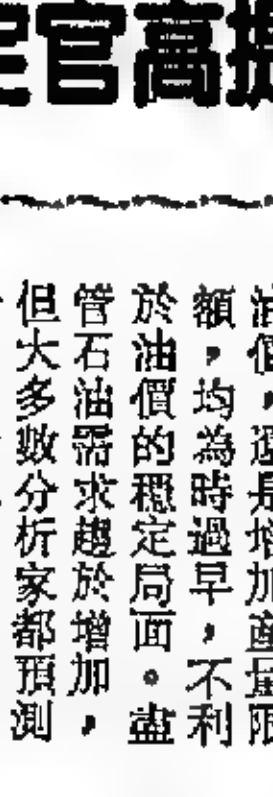 官高
額，均為時過早，不利
於油價的穩定局面。盡
管石油需求趨於增加，
但大多數分析家都預測